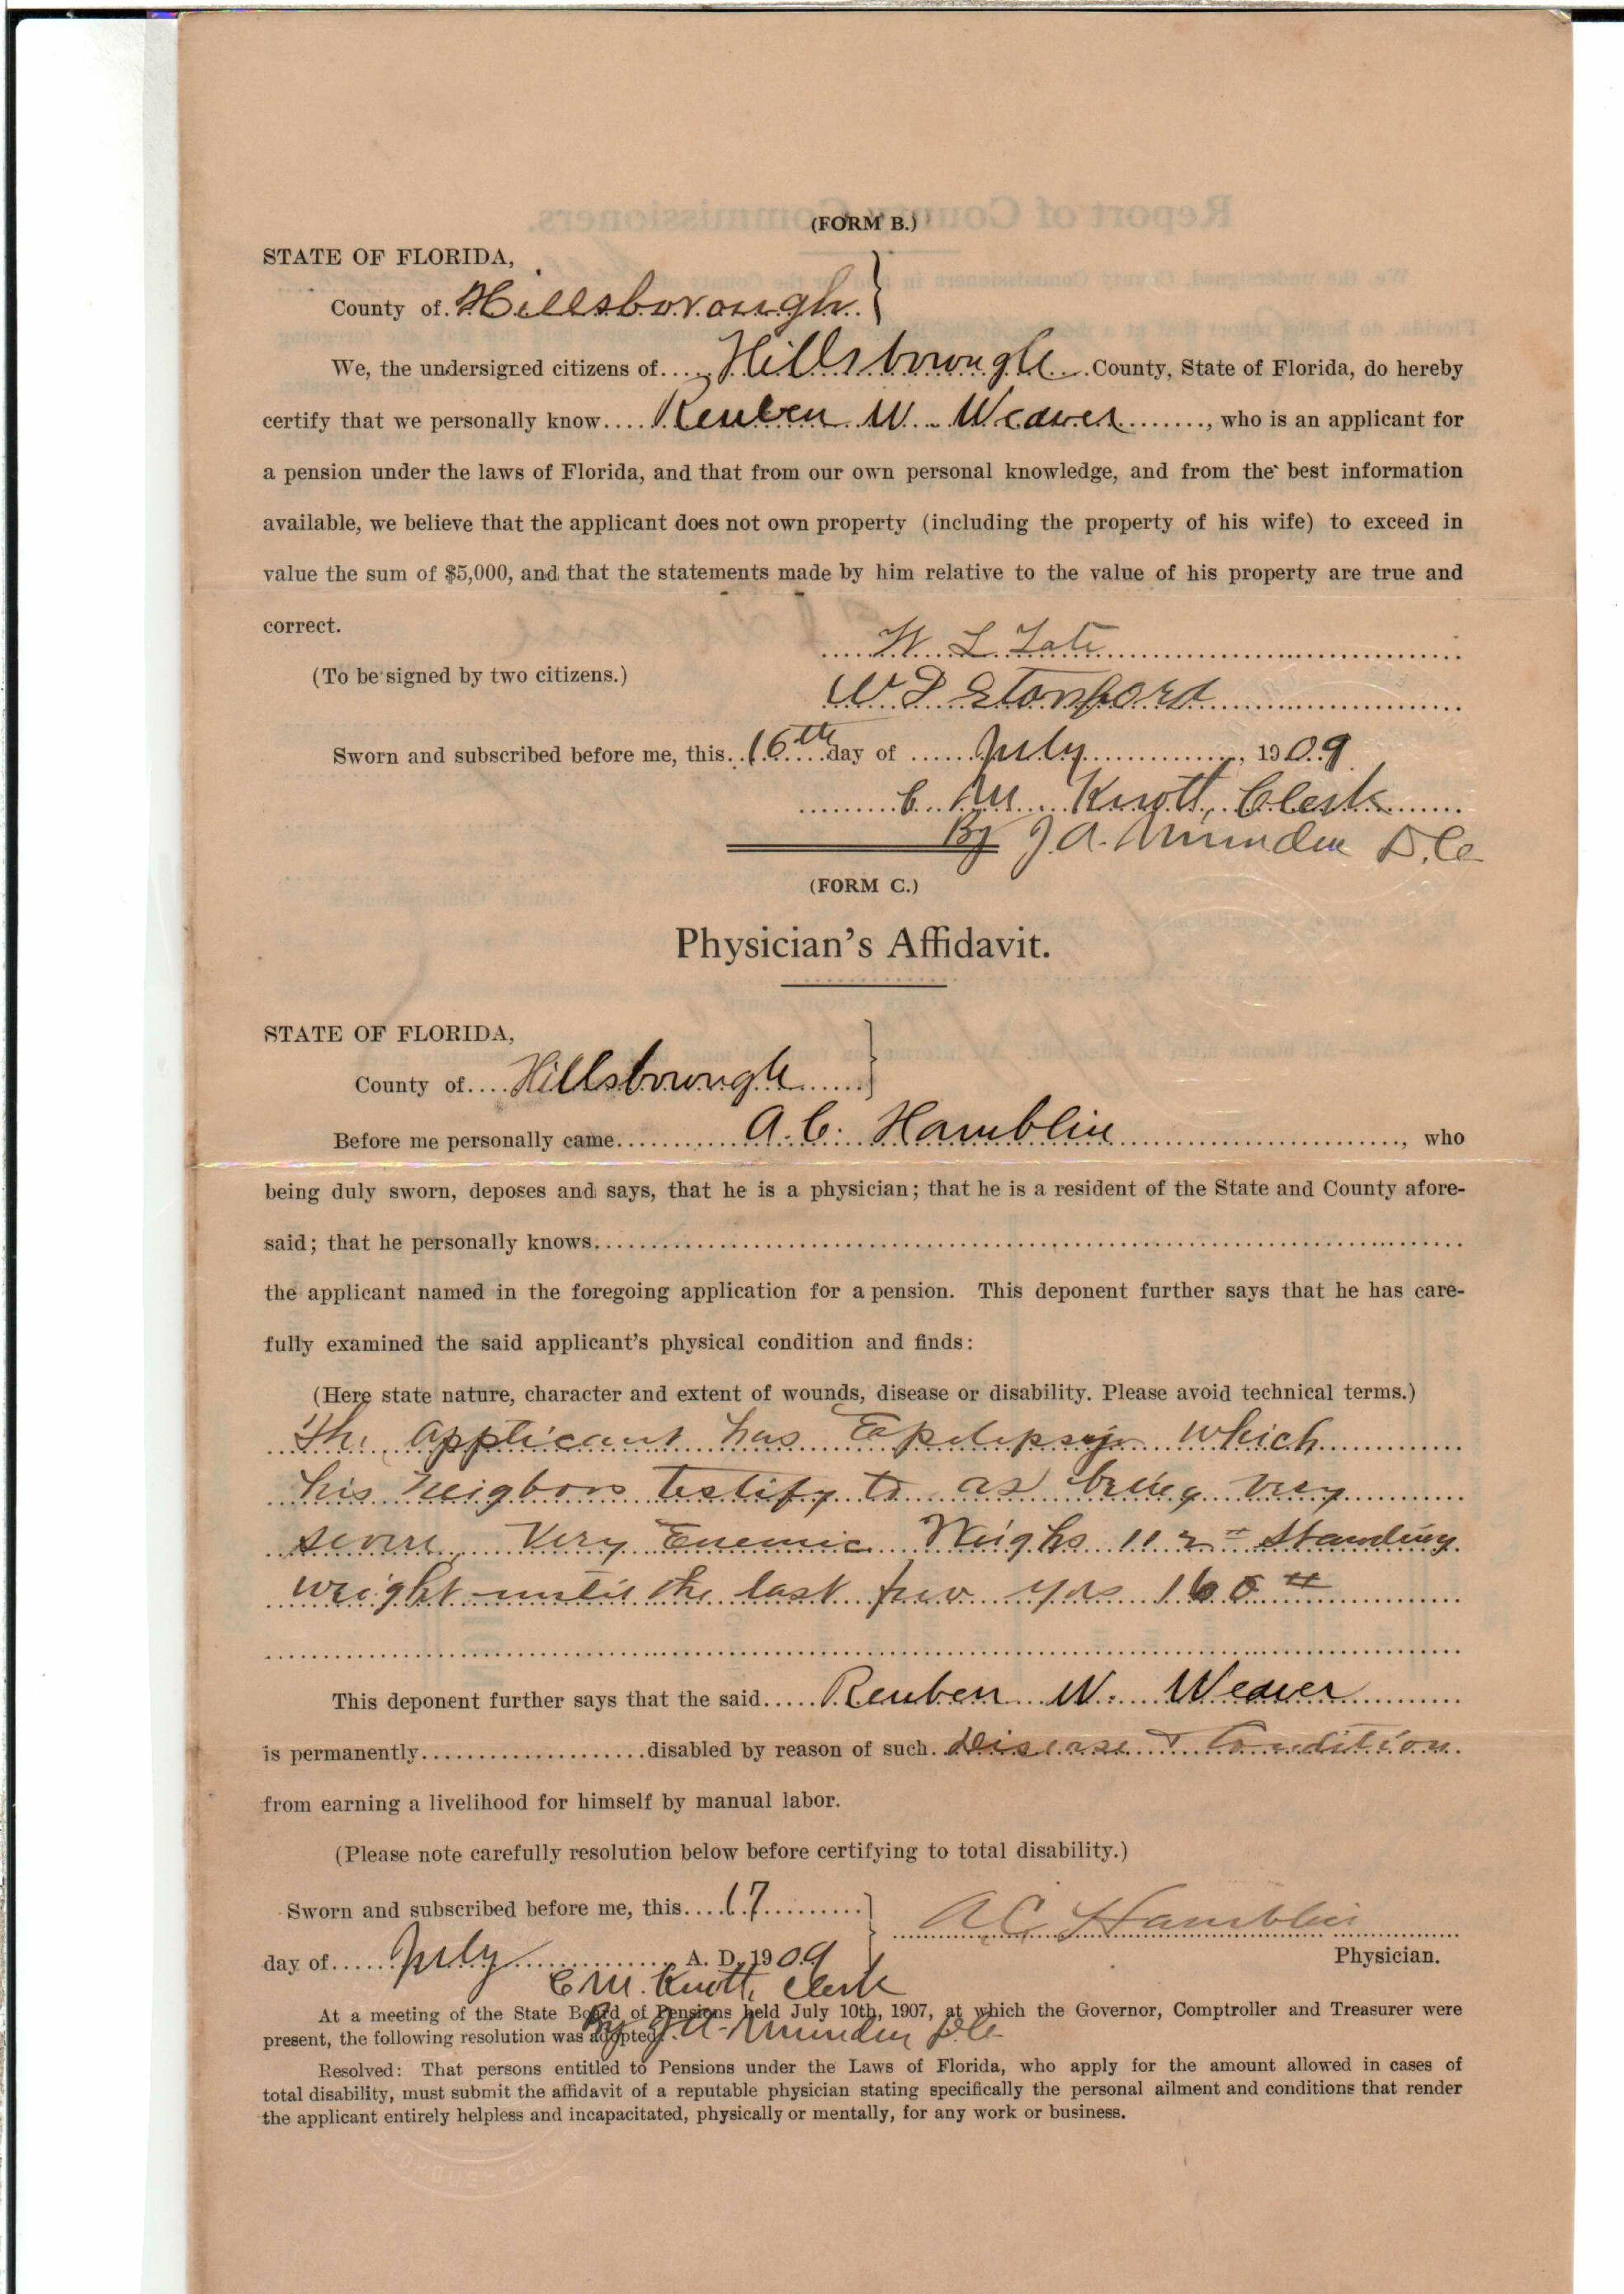 (FORM B.)
STATE OF FLORIDA,
County of Hillsborough }
We, the undersigned citizens of Hillsborough County, State of Florida, do hereby
certify that we personally know Reuben W. Weaver, who is an applicant for
a pension under the laws of Florida, and that from our own personal knowledge, and from the best information
available, we believe that the applicant does not own property (including the property of his wife) to exceed in
value the sum of $5,000, and that the statements made by him relative to the value of his property are true and
correct.
W. L. Tate
(To be signed by two citizens.)
W P Stanford
Sworn and subscribed before me, this 16th day of July, 1909
C. M. Knott, Clerk
By J A. Munden D.C.
(FORM C.)
Physician's Affidavit.
STATE OF FLORIDA,
County of Hillsborough }
Before me personally came A. C. Hamblin, who
being duly sworn, deposes and says, that he is a physician; that he is a resident of the State and County afore-
said; that he personally knows
the applicant named in the foregoing application for a pension. This deponent further says that he has care-
fully examined the said applicant's physical condition and finds:
(Here state nature, character and extent of wounds, disease or disability. Please avoid technical terms.)
The applicant has Epelepsy which
his neigbors testify to as being very
severe Very Enemic Weighs 112# Standing
weight until the last few yrs 160#
This deponent further says that the said Reuben W. Weaver
is permanently disabled by reason of such Disease & Condition
from earning a livelihood for himself by manual labor.
(Please note carefully resolution below before certifying to total disability.)
Sworn and subscribed before me, this 17 }
A C Hamblin
day of July A. D. 1909
Physician.
C M. Knott, Clerk
At a meeting of the State Board of Pensions held July 10th, 1907, at which the Governor, Comptroller and Treasurer were
present, the following resolution was adopted:
By J A. Munden D.C.
Resolved: That persons entitled to Pensions under the Laws of Florida, who apply for the amount allowed in cases of
total disability, must submit the affidavit of a reputable physician stating specifically the personal ailment and conditions that render
the applicant entirely helpless and incapacitated, physically or mentally, for any work or business.